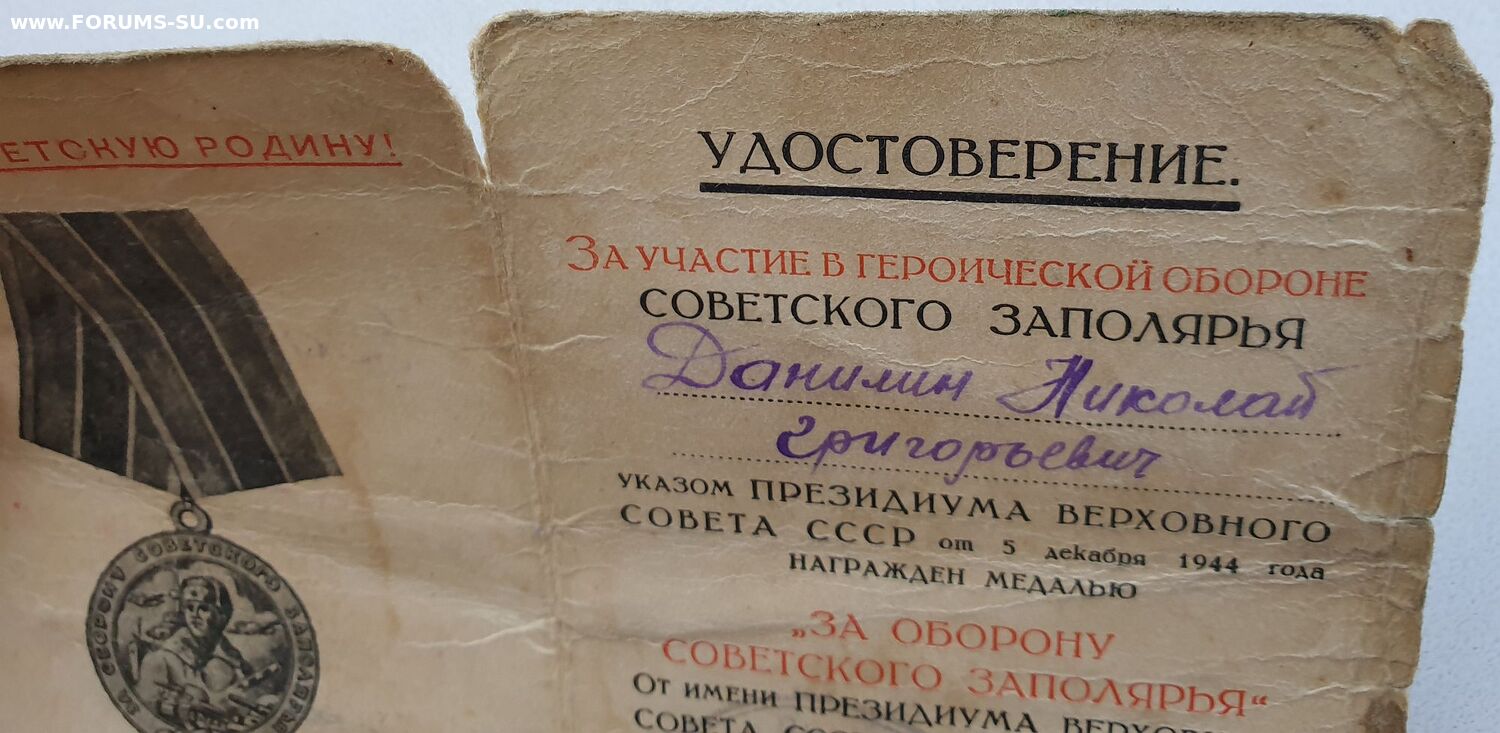 www.FORUMS-SU.com
ЕТСКУЮ РОДИНУ!
ЗА ОБОРОНУ СОВЕТСКОГО ЗАПОЛЯРЬЯ
УДОСТОВЕРЕНИЕ.
ЗА УЧАСТИЕ В ГЕРОИЧЕСКОЙ ОБОРОНЕ
СОВЕТСКОГО ЗАПОЛЯРЬЯ
Данилин Николай
Григорьевич
УКАЗОМ ПРЕЗИДИУМА ВЕРХОВНОГО
СОВЕТА СССР от 5 декабря 1944 года
НАГРАЖДЕН МЕДАЛЬЮ
„ЗА ОБОРОНУ
СОВЕТСКОГО ЗАПОЛЯРЬЯ“
ОТ ИМЕНИ ПРЕЗИДИУМА ВЕРХОВ
СОВЕТА